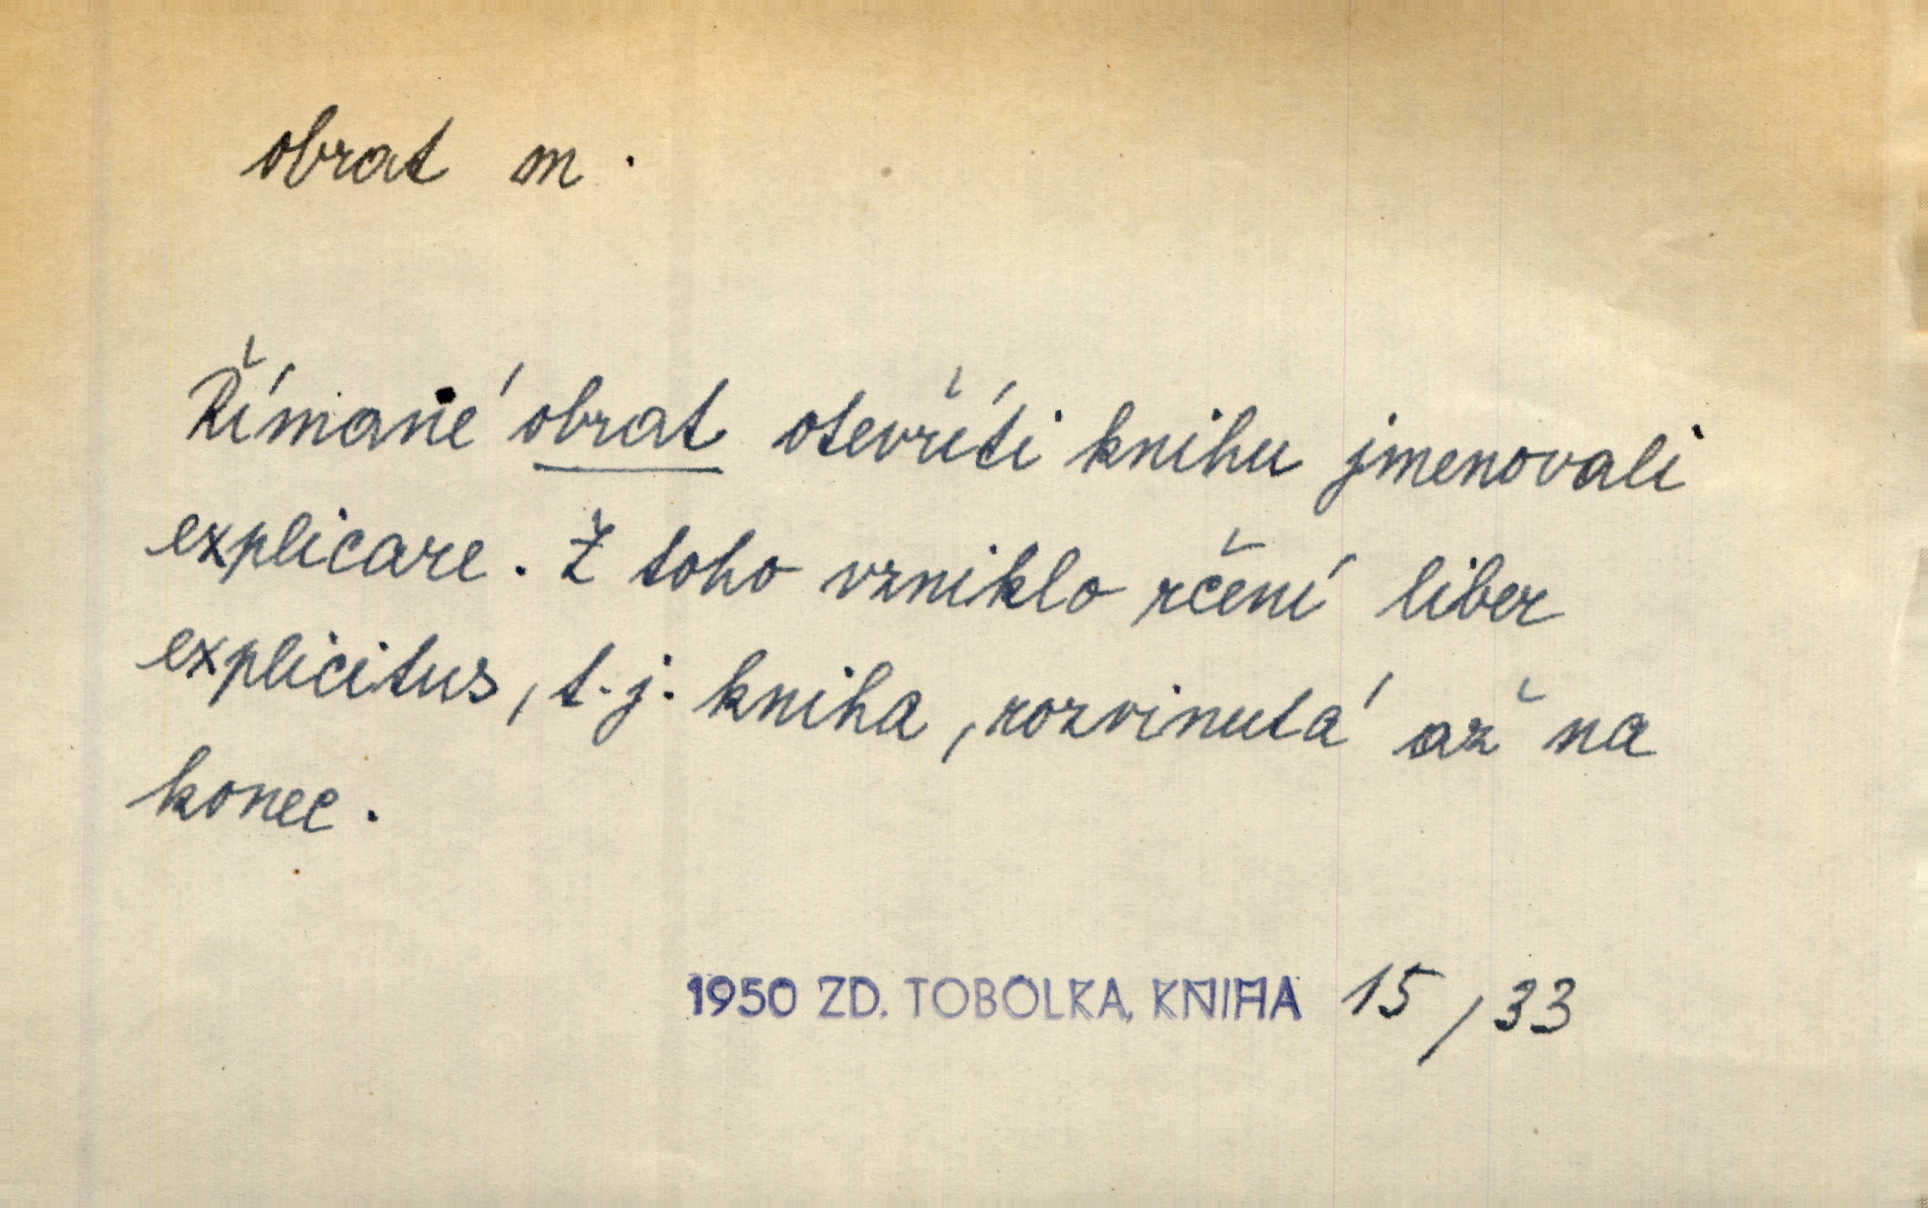 obrat m.
Římané obrat otevříti knihu jmenovali
explicare. Z toho vzniklo rčení liber
explicitus, t. j. kniha, rozvinutá až na
konec.
1950 ZD. TOBOLKA, KNIHA 15/33